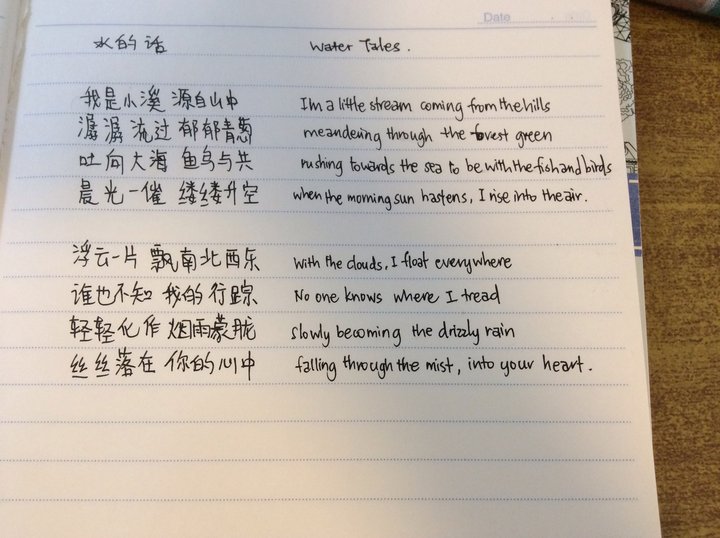 Date
水的话 Water Tales.
我是小溪 源自山中 I'm a little stream coming from the hills
潺潺流过 郁郁青葱 meandering through the forest green
吐向大海 鱼鸟与共 rushing towards the sea to be with the fish and birds
晨光一催 缕缕升空 when the morning sun hastens, I rise into the air.
浮云一片 飘南北西东 With the clouds, I float everywhere
谁也不知 我的行踪 No one knows where I tread
轻轻化作 烟雨蒙胧 slowly becoming the drizzly rain
丝丝落在 你的心中 falling through the mist, into your heart.